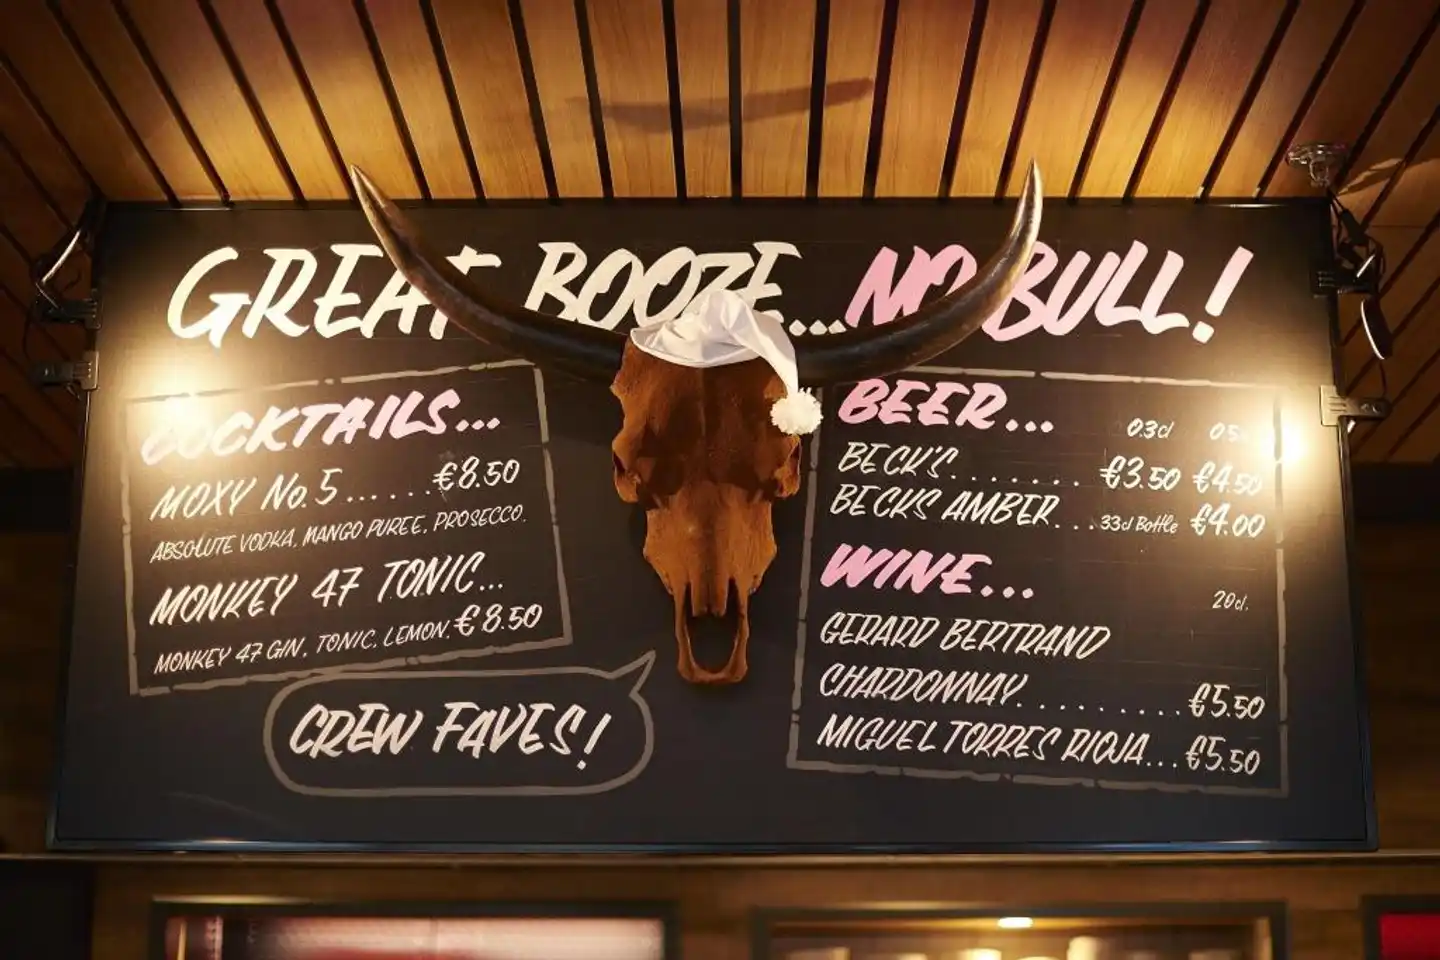 GREAT BOOZE...NO BULL!
COCKTAILS...
MOXY No. 5......€8.50
ABSOLUTE VODKA, MANGO PUREE, PROSECCO.
MONKEY 47 TONIC...
MONKEY 47 GIN, TONIC, LEMON. €8.50
CREW FAVES!
BEER... 0.3cl
BECK'S........ €3.50 €4.50
BECKS AMBER...33cl Bottle €4.00
WINE...
20cl.
GERARD BERTRAND
CHARDONNAY..........€5.50
MIGUEL TORRES RIOJA...€5.50